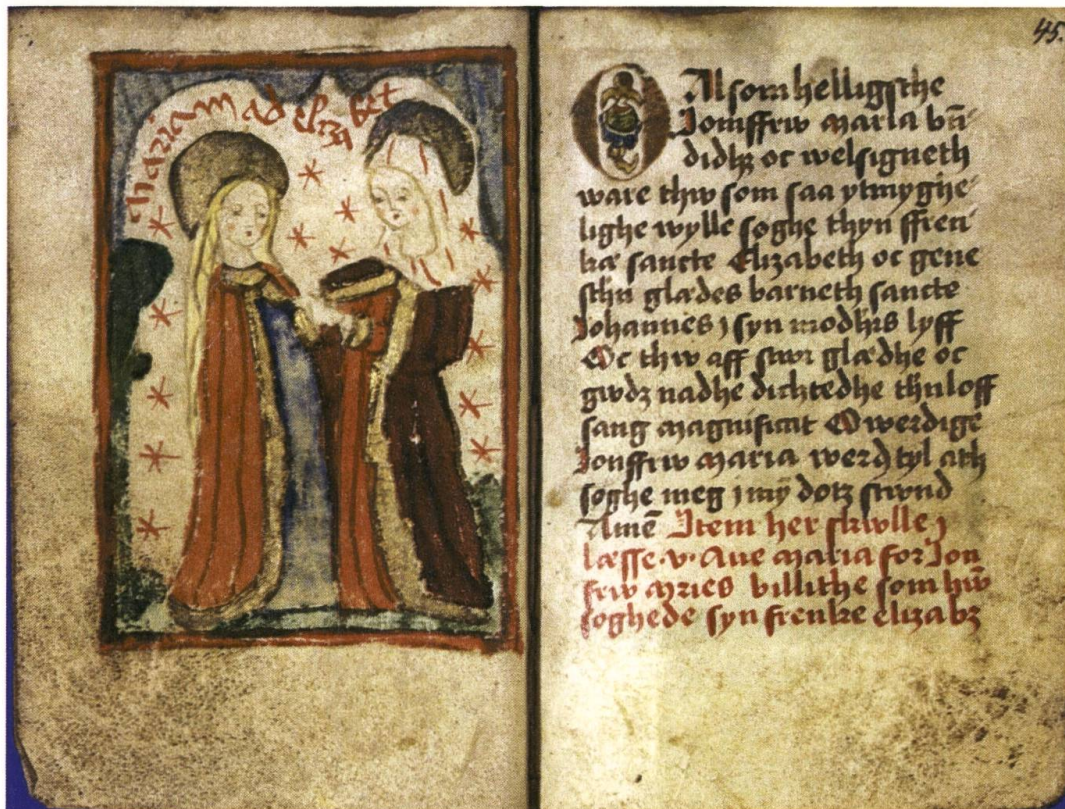 mariam ad elizabet
45.
O Alsom helligsthe
Jomffrw maria bñ
didhz oc welsigneth
ware thw som saa ytmyghe
lighe wylle søghe thyn ffren
kæ sancte Elizabeth oc gene
sthn glædes barneth sancte
Johannes j syn modhrs lyff
Oc thw aff stwr glædhe oc
gwdz nadhe dichtedhe thnloff
sang magnificat O werdige
Jonffrw maria werd tyl ath
søghe meg j mÿ dotz stwnd
Amē Item her skwlle j
læsse .v. Aue maria for Jon
frw mries billithe som hw̄
søghede syn frenke elizabz